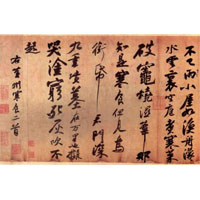 不已雨小屋如漁舟濛濛
水雲裏空庖煮寒菜
破竈燒濕葦那
知是寒食但見烏
銜帋君門深
九重墳墓在万里也擬
哭塗窮死灰吹不
起
右黃州寒食二首